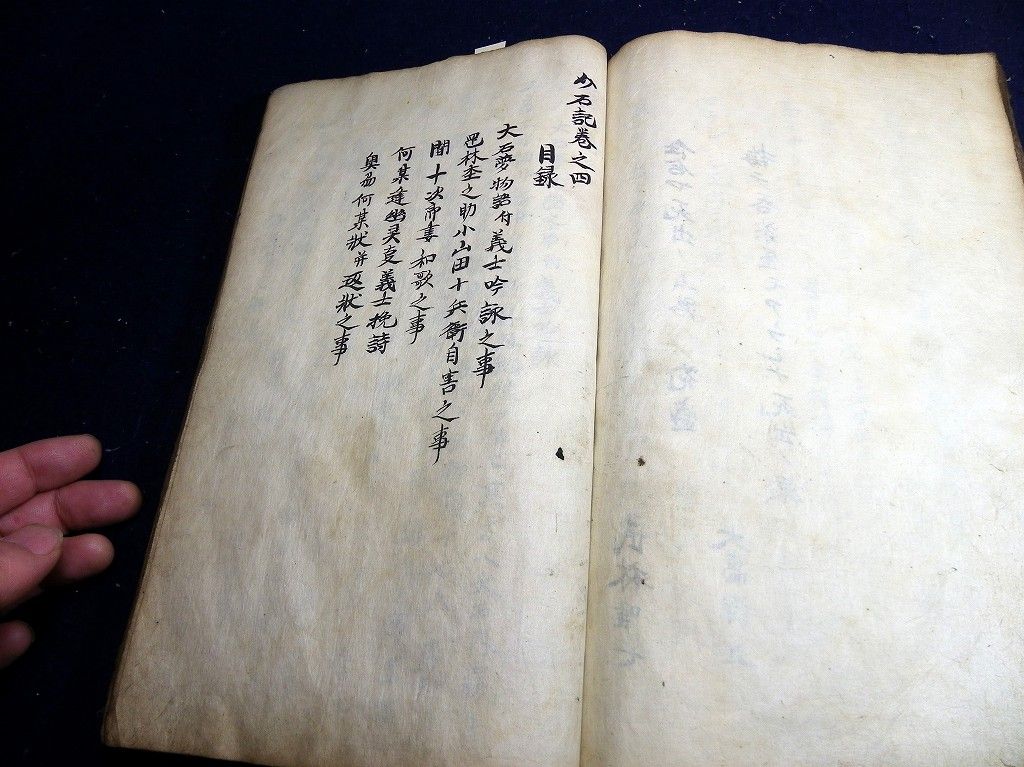 石記巻之四
目録
大石夢物語付義士吟詠之事
林杢之助小山田十兵衛自害之事
間十次郎妻和歌之事
何某逢幽灵変義士挽詩
奥 何某状并返状之事